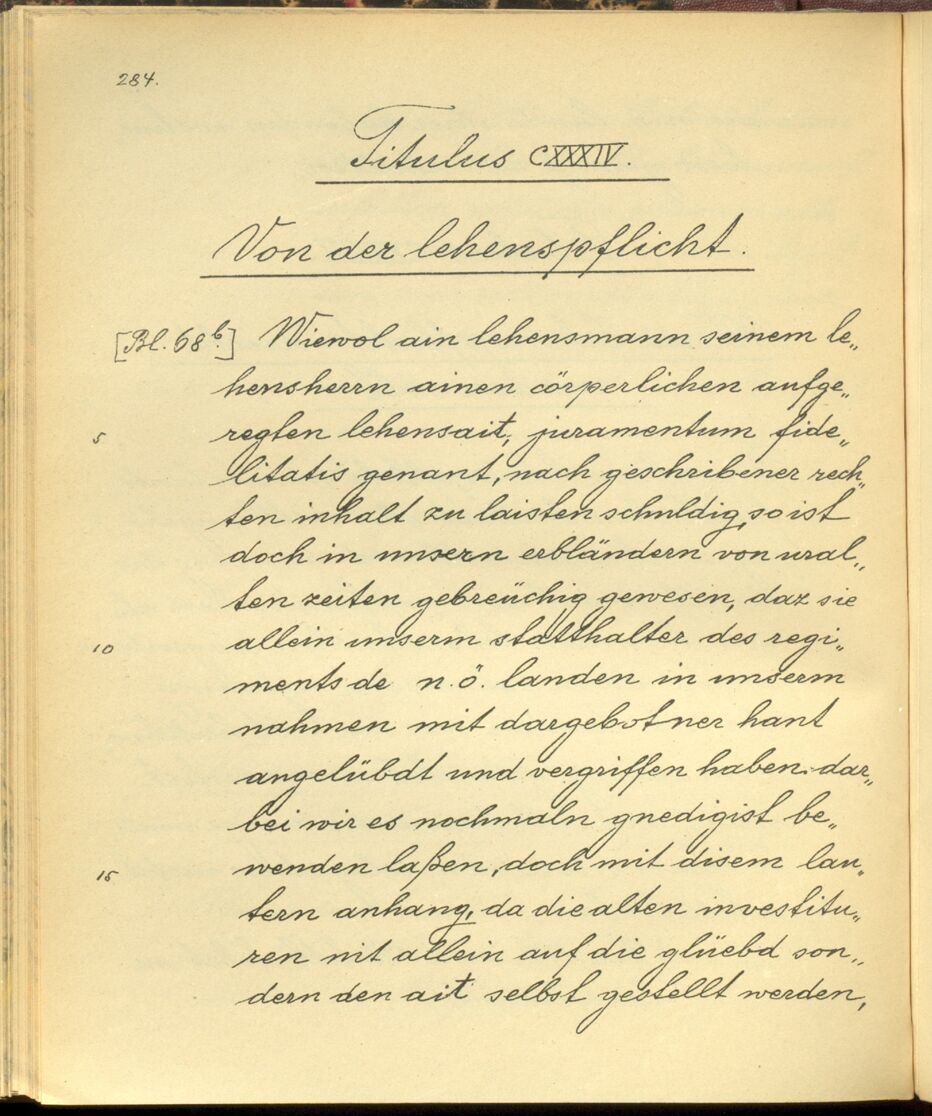 284.
Titulus CXXXIV.
Von der lehenspflicht.
[Bl. 68b.] Wiewol ain lehensmann seinem le„
hensherrn ainen cörperlichen aufge„
5 reglen lehensait, juramentum fide„
litatis genant, nach geschribener rech„
ten inhalt zu laisten schuldig, so ist
doch in unsern erbländern von ural„
ten zeiten gebreüchig gewesen, daz sie
10 allein unserm statthalter des regi„
ments de n.ö. landen in unserm
nahmen mit dargebotner hant
angelübdt und vergriffen haben. dar„
bei wir es nochmaln gnedigist be„
15 wenden laßen, doch mit disem lau„
tern anhang, da die alten investitu„
ren nit allein auf die glüebd son„
dern den ait selbst gestellt werden,